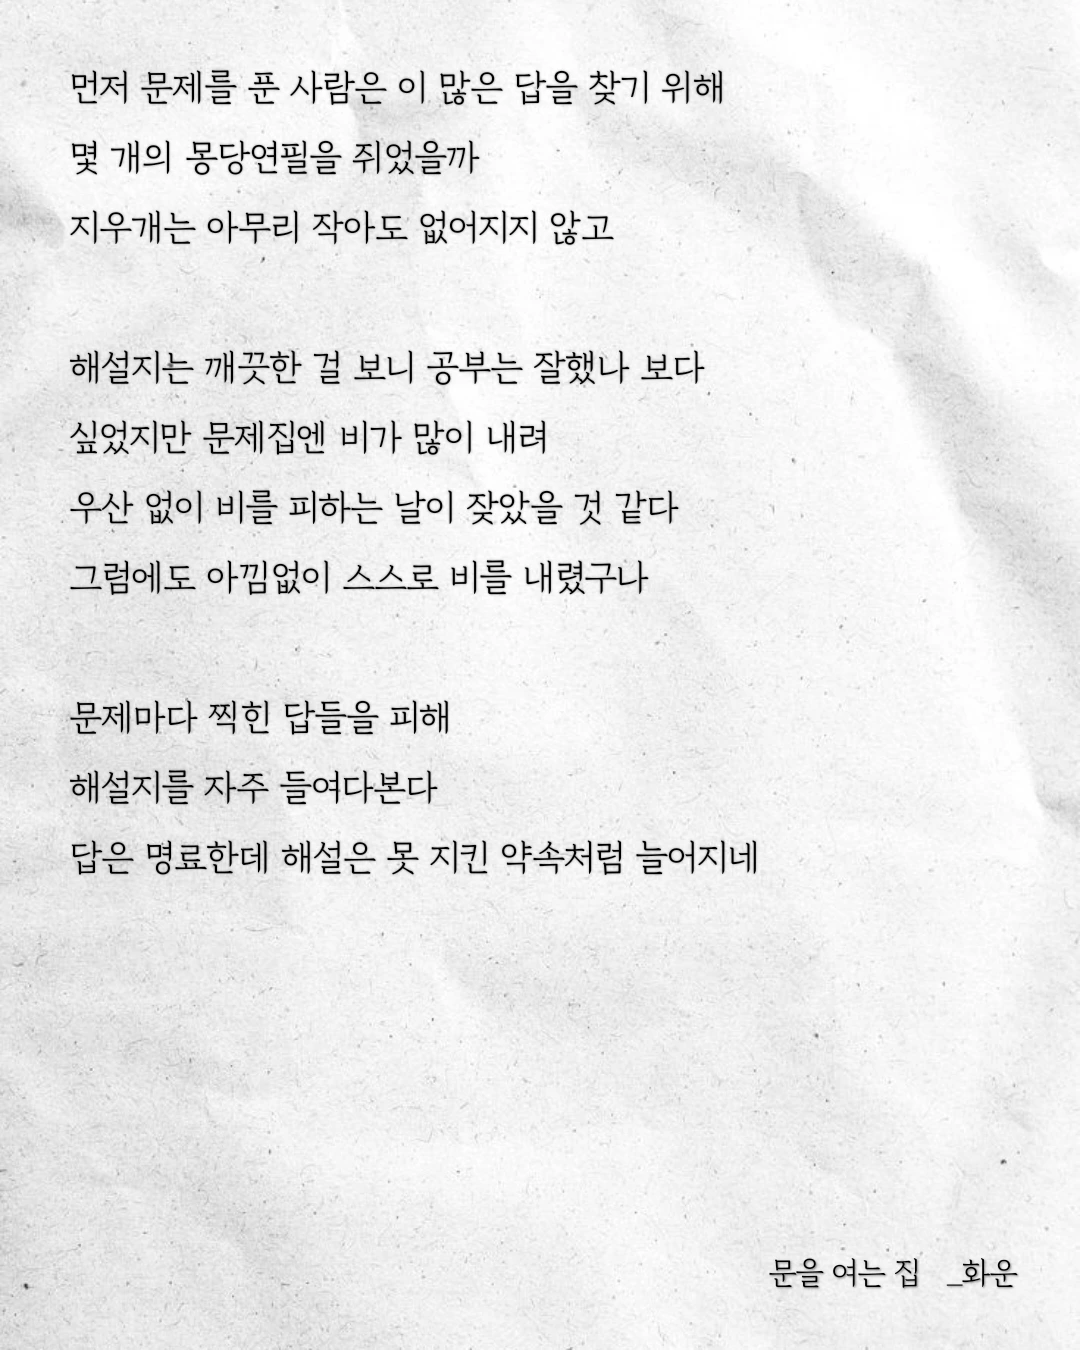 먼저 문제를 푼 사람은 이 많은 답을 찾기 위해
몇 개의 몽당연필을 쥐었을까
지우개는 아무리 작아도 없어지지 않고
해설지는 깨끗한 걸 보니 공부는 잘했나 보다
싶었지만 문제집엔 비가 많이 내려
우산 없이 비를 피하는 날이 잦았을 것 같다
그럼에도 아낌없이 스스로 비를 내렸구나
문제마다 찍힌 답들을 피해
해설지를 자주 들여다본다
답은 명료한데 해설은 못 지킨 약속처럼 늘어지네
문을 여는 집 _화운